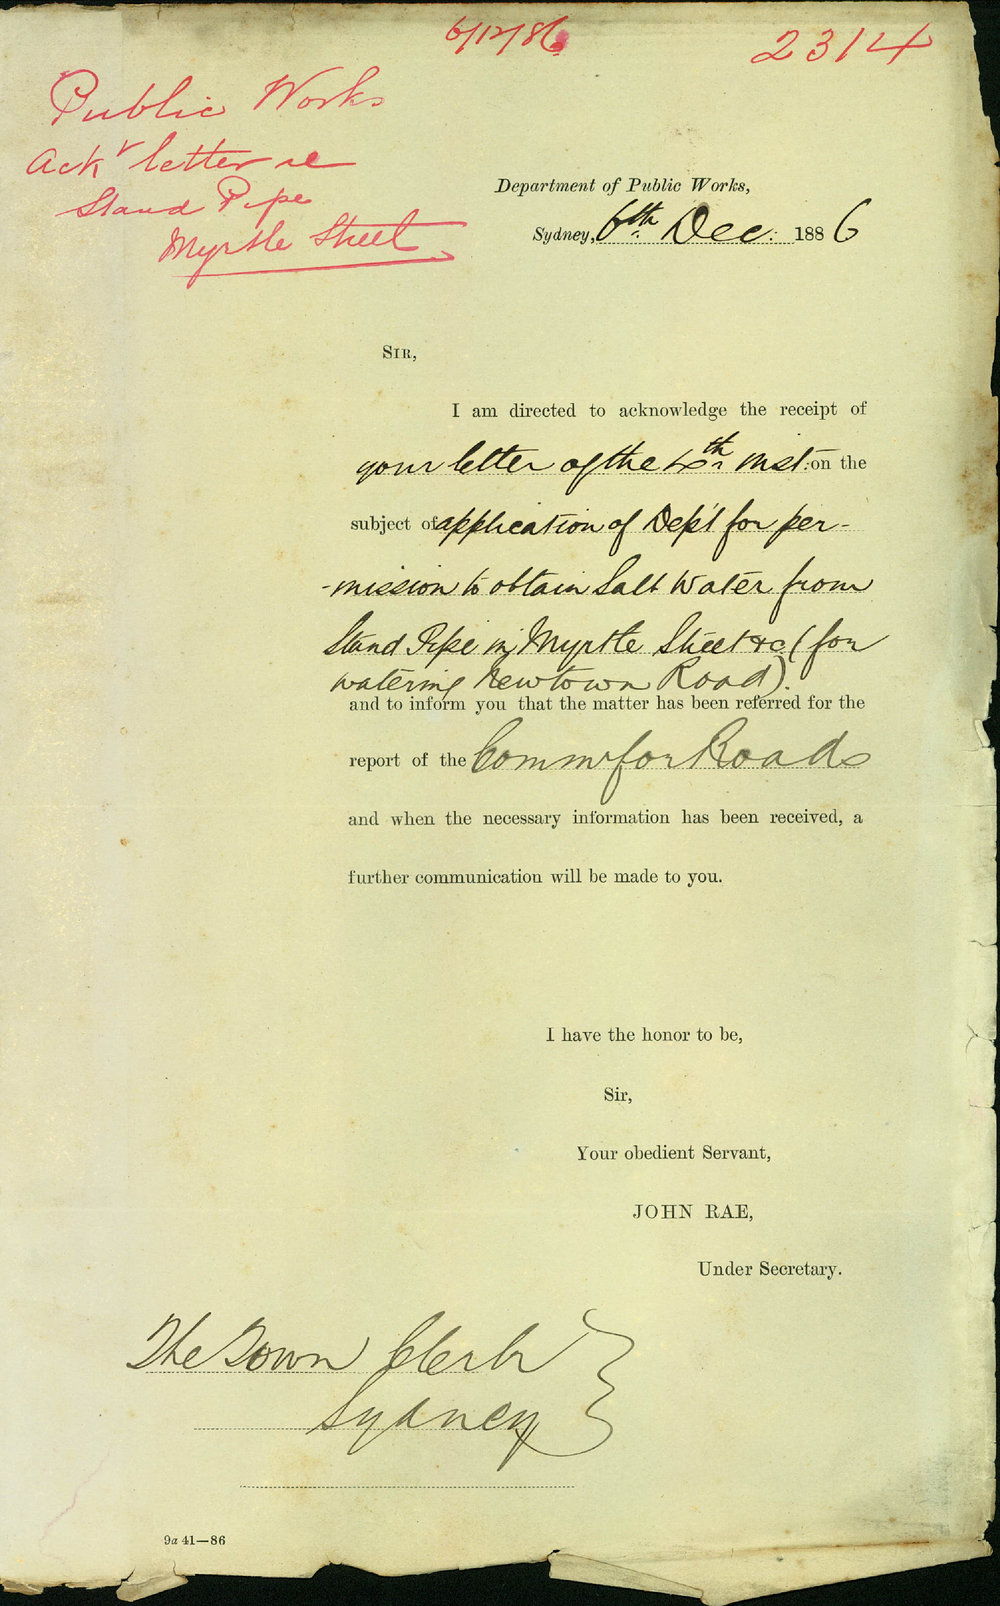 6/12/86
2314
Public Works
Ackr letter re
Stand Pipe
Myrtle Street
Department of Public Works,
Sydney, 6th Dec: 1886
SIR,
I am directed to acknowledge the receipt of
your letter of the 4th inst: on the
subject of application of Dep't for per-
-mission to obtain Salt Water from
Stand Pipe in Myrtle Street &c. (for
watering Newtown Road).
and to inform you that the matter has been referred for the
report of the Commr for Roads
and when the necessary information has been received, a
further communication will be made to you.
I have the honor to be,
Sir,
Your obedient Servant,
JOHN RAE,
Under Secretary.
The Town Clerk
Sydney
9a 41—86